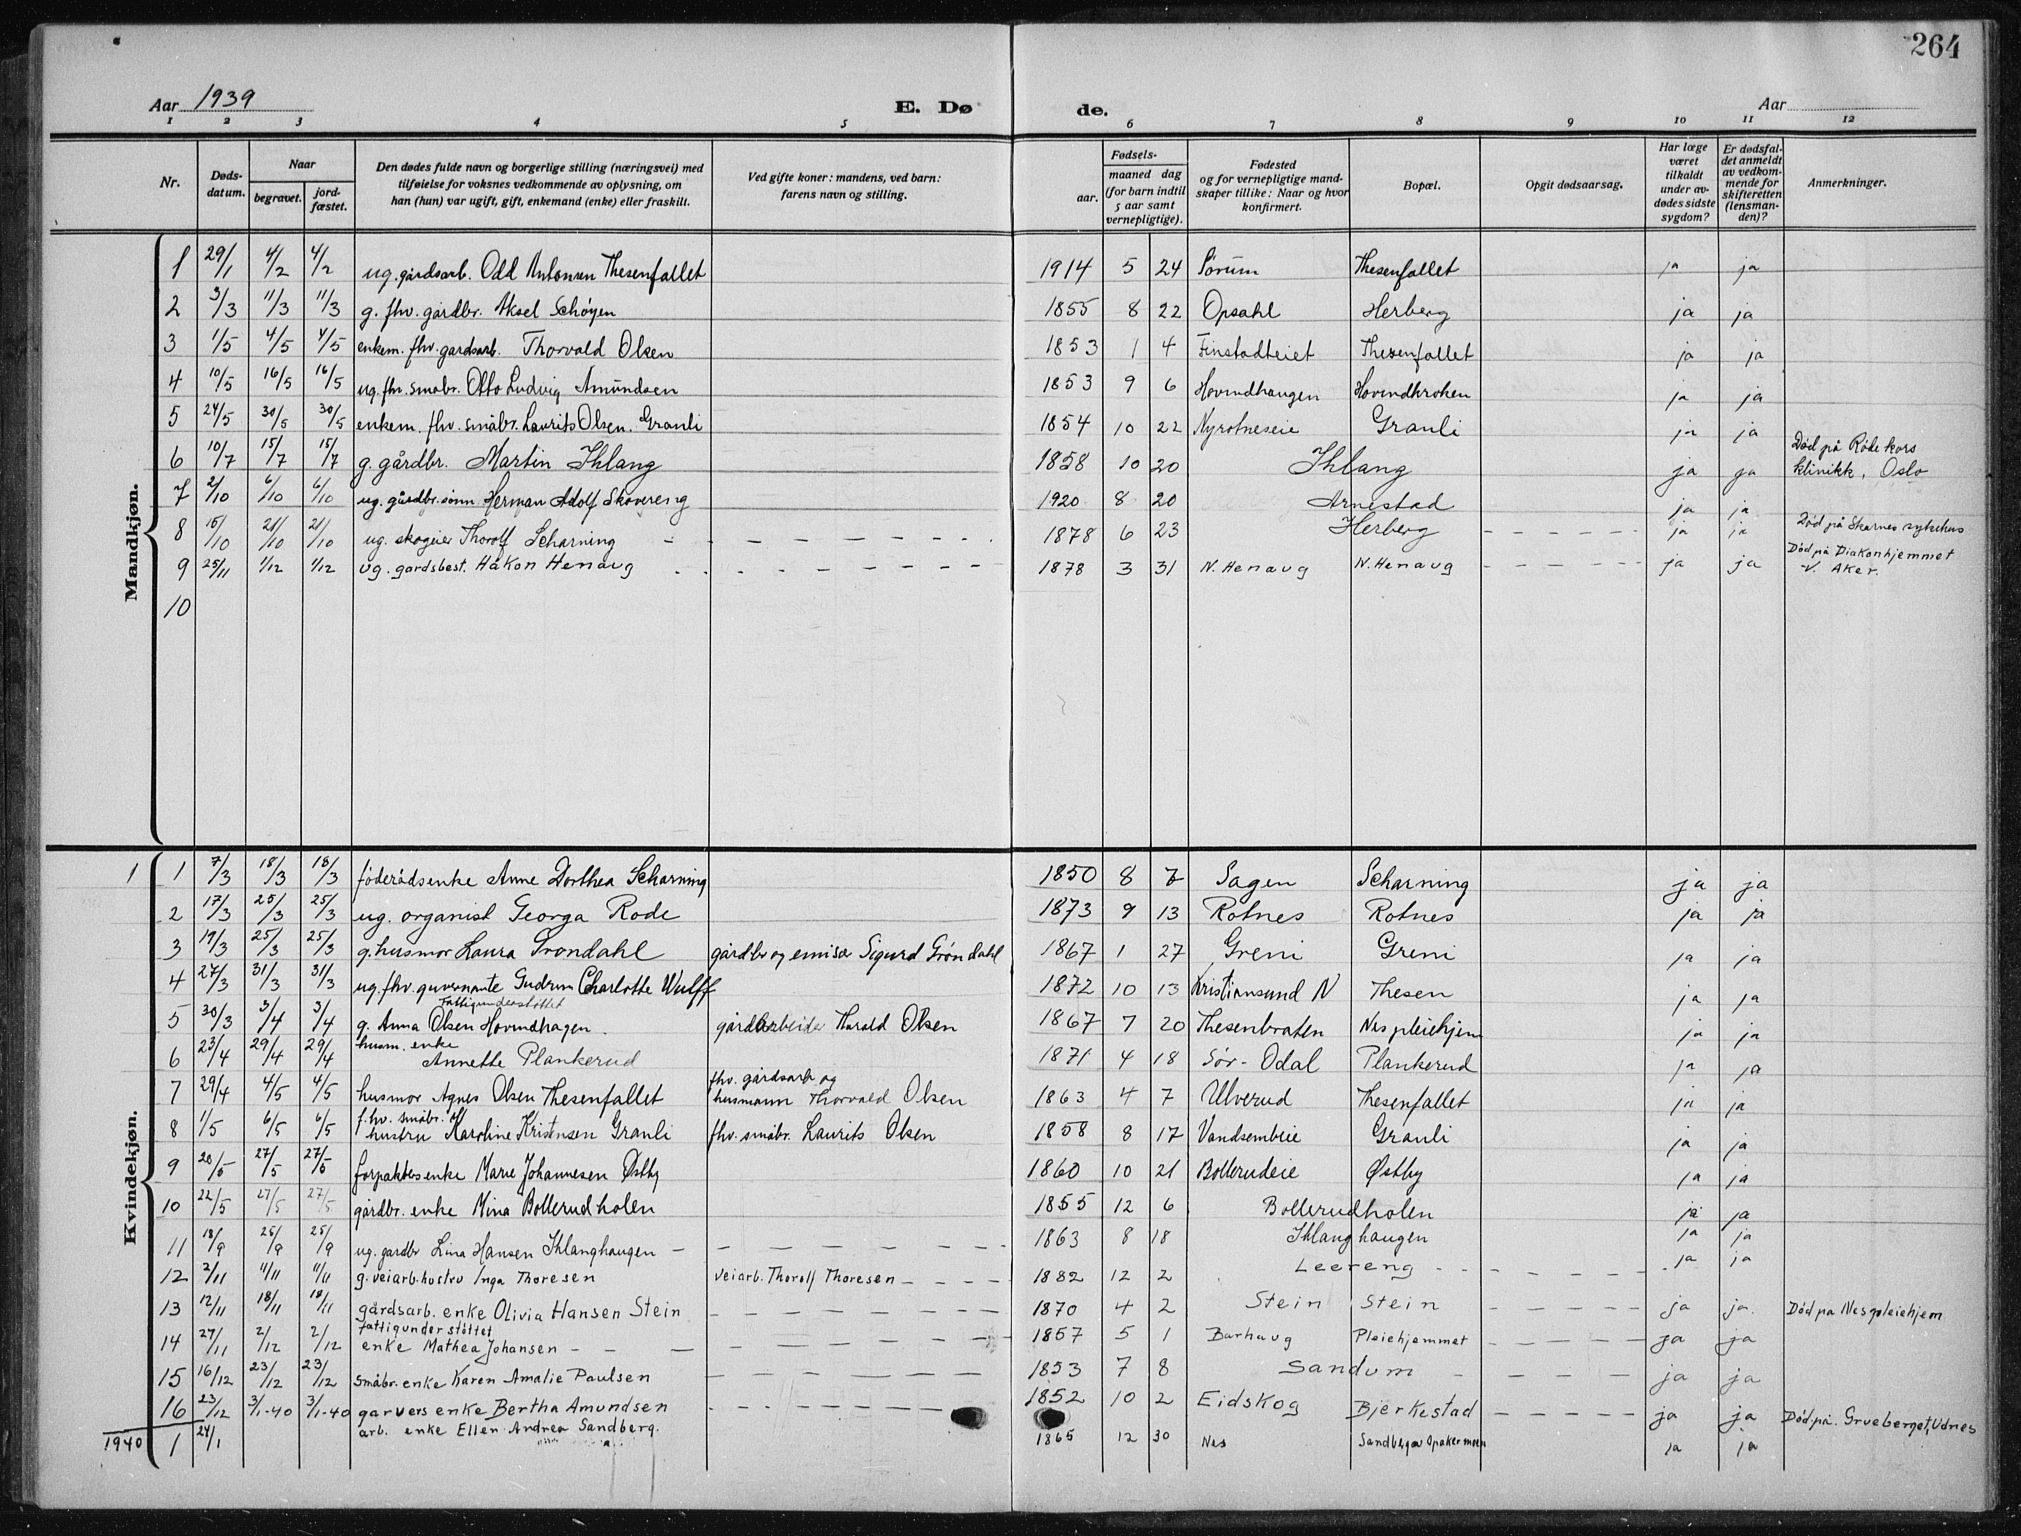 264
Aar 1939 E. Dø de. Aar
1 2 3 4 5 6 7 8 9 10 11 12
Nr. Døds-datum. Naar begravet. jord-fæstet. Den dødes fulde navn og borgerlige stilling (næringsvei) med tilføielse for voksnes vedkommende av oplysning, om han (hun) var ugift, gift, enkemand (enke) eller fraskilt. Ved gifte koner: mandens, ved barn: farens navn og stilling. Fødsels- aar. maaned dag (for barn indtil 5 aar samt vernepligtige). Fødested og for vernepligtige mand-skaper tillike: Naar og hvor konfirmert. Bopæl. Opgit dødsaarsag. Har læge været tilkaldt under av-dødes sidste sygdom? Er dødsfal-det anmeldt av vedkom-mende for skifteretten (lensman-den)? Anmerkninger.
Mandkjøn.
1 29/1 4/2 4/2 ug. gårdsarb. Odd Antonsen Thesenfallet 1914 5 24 Sørum Thesenfallet ja ja
2 3/3 11/3 11/3 g. fhv. gårdbr. Aksel Schøyen 1855 8 22 Opsahl Herberg ja ja
3 1/5 4/5 4/5 enkem. fhv. gardsarb. Thorvald Olsen 1853 1 4 Finstadteiet Thesenfallet ja ja
4 10/5 16/5 16/5 ug. fhv. småbr. Otto Ludvig Amundsen 1853 9 6 Hovindhaugen Hovindkroken ja ja
5 24/5 30/5 30/5 enkem. fhv. småbr. Laurits Olsen. Granli 1854 10 22 Nyrotneseie Granli ja ja
6 10/7 15/7 15/7 g. gårdbr. Martin Ihlang 1858 10 20 Ihlang ja ja Død på Røde kors klinikk, Oslo
7 2/10 6/10 6/10 ug. gårdbr. sønn Herman Adolf Skovereng 1920 8 20 Arnestad ja ja
8 15/10 21/10 21/10 ug. skogeier Thorolf Scharning 1878 6 23 Herberg ja ja Død på Skarnes sykehus
9 25/11 1/12 1/12 ug. gardsbest. Håkon Henaug 1878 3 31 N. Henaug N. Henaug ja ja Død på Diakonhjemmet V. Aker.
10
Kvindekjøn.
1 1 7/3 18/3 18/3 føderådsenke Anne Dorthea Scharning 1850 8 7 Sagen Scharning ja ja
2 17/3 25/3 25/3 ug. organist Georga Rode 1873 9 13 Rotnes Rotnes ja ja
3 19/3 25/3 25/3 g. husmor Laura Grøndahl gårdbr og emisær Sigurd Grøndahl 1867 1 27 Greni Greni ja ja
4 27/3 31/3 31/3 ug. fhv. guvernante Gudrun Charlotte Wulff 1872 10 13 Kristiansund N Thesen ja ja
Fattigunderstøttet
5 30/3 3/4 3/4 g. Anna Olsen Hovindhagen. gårdarbeider Harald Olsen 1867 7 20 Thesenbraten Nes pleiehjem ja ja
husm. enke
6 23/4 29/4 29/4 Annette Plankerud 1871 4 18 Sør-Odal Plankerud ja ja
fhv. gårdsarb og
7 29/4 4/5 4/5 husmor Agnes Olsen Thesenfallet husmann Thorvald Olsen 1863 4 7 Ulverud Thesenfallet ja ja
f.hv. småbr.
8 1/5 6/5 6/5 hustru Karoline Kristensen Granli fhv. småbr. Laurits Olsen 1858 8 17 Vandsembeie Granli ja ja
9 20/5 27/5 27/5 forpakters enke Marie Johannesen Østby 1860 10 21 Bollerudeie Østby ja ja
10 22/5 27/5 27/5 gårdbr. enke Mina Bollerudholen 1855 12 6 Bollerudholen ja ja
11 18/9 25/9 25/9 ug. gardbr Lina Hansen Ihlanghaugen 1863 8 18 Ihlanghaugen ja ja
12 2/11 11/11 11/11 g. veiarb. hustru Inga Thoresen veiarb. Thorolf Thoresen 1882 12 2 Leereng ja ja
13 12/11 18/11 18/11 gårdsarb. enke Olivia Hansen Stein 1870 4 2 Stein Stein ja ja. Død på Nes pleiehjem
fattigunderstøttet
14 27/11 2/12 2/12 enke Mathea Johansen 1857 5 1 Barhaug Pleiehjemmet ja ja
15 16/12 23/12 23/12 småbr. enke Karen Amalie Paulsen 1853 7 8 Sandum ja ja
16 23/12 3/1-40 3/1-40 garvers enke Bertha Amundsen 1852 10 2 Eidskog Bjerkestad ja ja Død på. Grueberget, Udnes
1940 1 24/1 arb. enke Ellen Andrea Sandberg. 1865 12 30 Nes Sandberg av Opakermoen ja ja